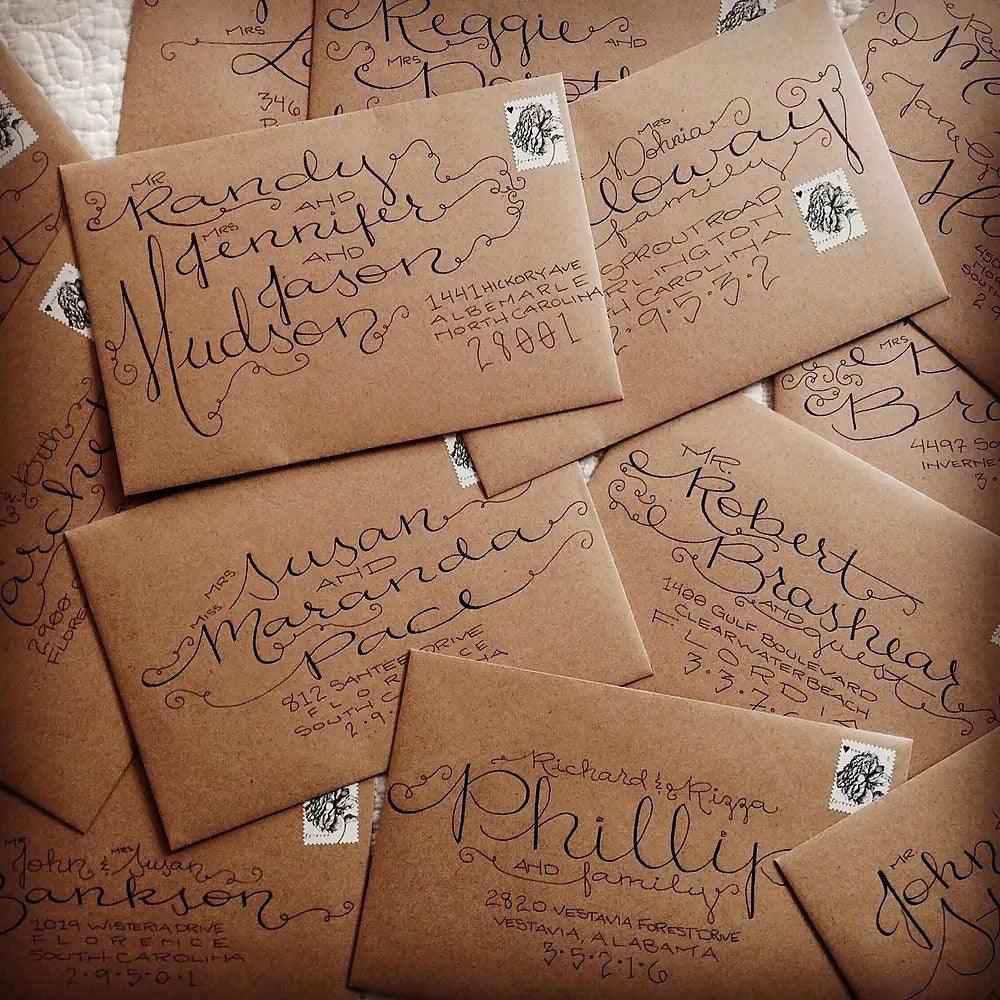 Reggie
AND
MRS
MRS
346
MR.
Randy
AND
MRS
Jennifer
AND
Jason
Hudson
1441 HICKORY AVE
ALBEMARLE
NORTH CAROLINA
28001
MRS
loway
family
SPROUT ROAD
RLINGTON
TH CAROLINA
2·9·5·3·2
MRS
Br
4497 SO
INVERNE
3·
MR.
Robert
Brashear
AND guest
1400 GULF BOULEVARD
CLEARWATER BEACH
FLORDIA
3·3·7·
MISS MRS
Susan
AND
Maranda
Pace
812 SANTEE DRIVE
FLOR
SOUTH C
2·9·
Beth
2900
FLORE
Richard & Rizza
Phillip
AND family
2820 VESTAVIA FOREST DRIVE
VESTAVIA, ALABAMA
3·5·2·1·6
MR John & MRS Susan
Bankson
1019 WISTERIA DRIVE
FLORENCE
SOUTH CAROLINA
2·9·5·0·1
MR
John